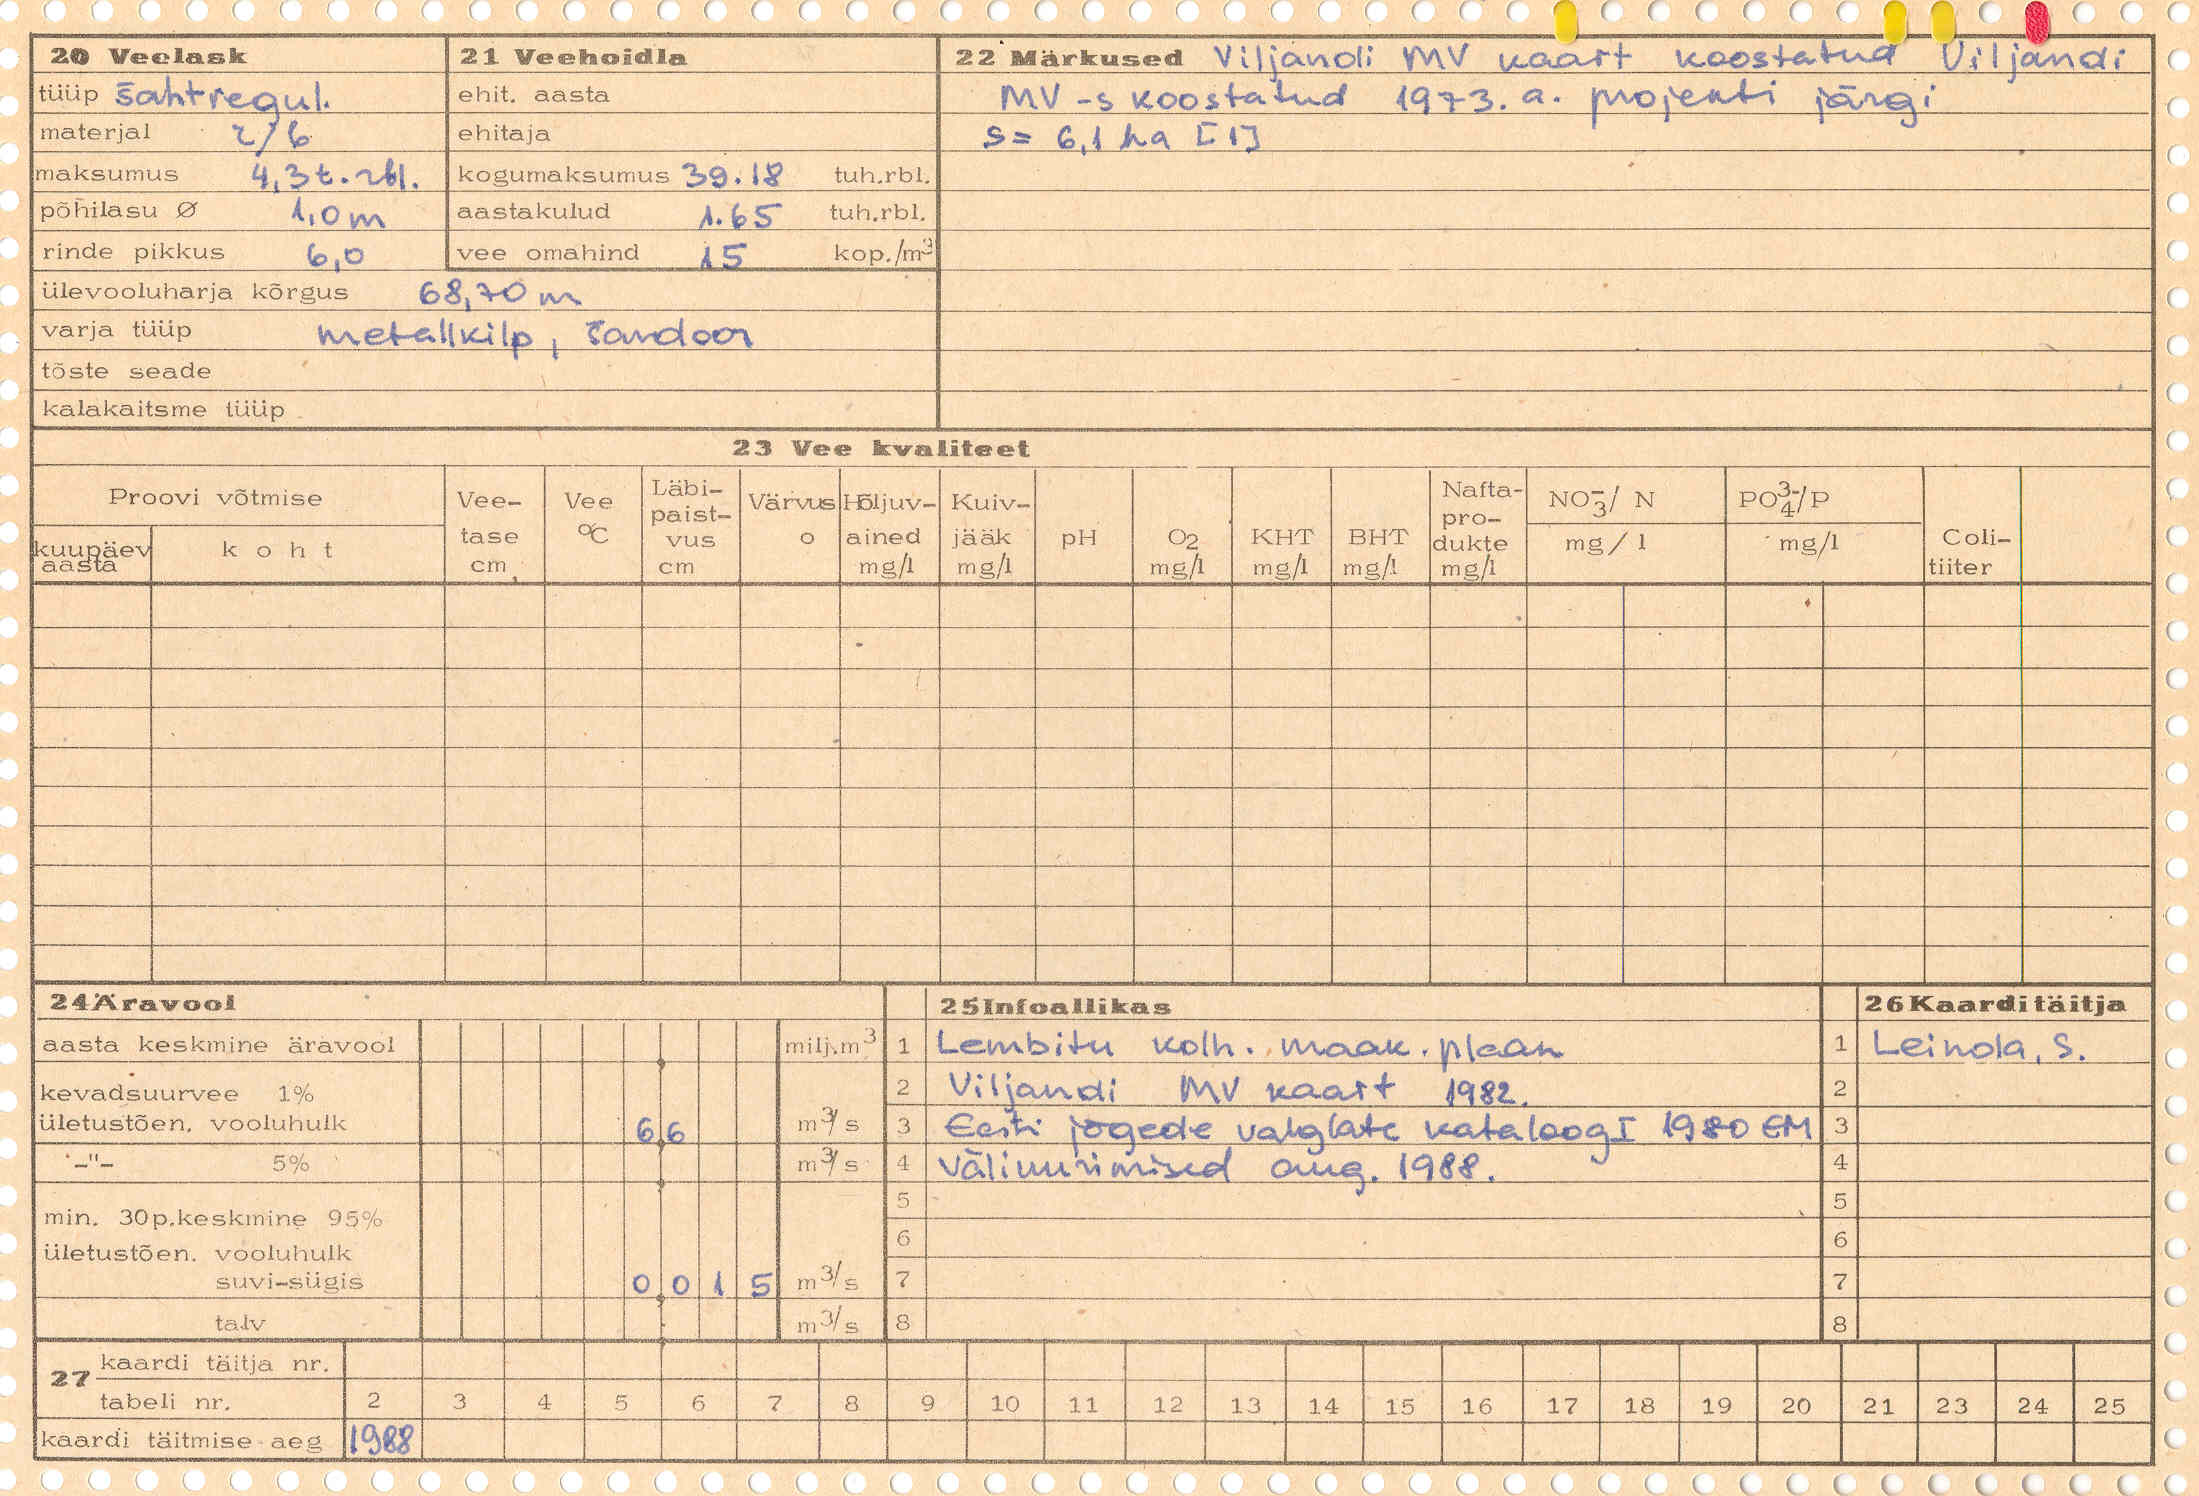 20 Veelask
tüüp šahtregul.
materjal r/b
maksumus 4,3 t. rbl.
põhilasu Ø 1,0 m
rinde pikkus 6,0
ülevooluharja kõrgus 68,70 m
varja tüüp metallkilp, šandoor
tõste seade
kalakaitsme tüüp
21 Veehoidla
ehit. aasta
ehitaja
kogumaksumus 39.18 tuh.rbl.
aastakulud 1.65 tuh.rbl.
vee omahind 15 kop./m³
22 Märkused Viljandi MV kaart koostatud Viljandi
MV-s koostatud 1973. a. projekti järgi
S= 6,1 ha [1]
23 Vee kvaliteet
Proovi võtmise
kuupäev aasta
koht
Vee-tase cm
Vee °C
Läbi-paist-vus cm
Värvus o
Hõljuv-ained mg/l
Kuiv-jääk mg/l
pH
O₂ mg/l
KHT mg/l
BHT mg/l
Nafta-pro-dukte mg/l
NO₃⁻/ N mg/l
PO₄³⁻/P mg/l
Coli-tiiter
24 Äravool
aasta keskmine äravool milj.m³
kevadsuurvee 1%
ületustõen. vooluhulk 6 6 m³/s
-"- 5% m³/s
min. 30p.keskmine 95%
ületustõen. vooluhulk
suvi-sügis 0 0 1 5 m³/s
talv m³/s
25 Infoallikas
1 Lembitu kolh. maak. plaan
2 Viljandi MV kaart 1982.
3 Eesti jõgede valglate kataloog I 1980 EM
4 Väliuurimised aug. 1988.
5
6
7
8
26 Kaardi täitja
1 Leinola, S.
2
3
4
5
6
7
8
27 kaardi täitja nr.
tabeli nr. 2 3 4 5 6 7 8 9 10 11 12 13 14 15 16 17 18 19 20 21 23 24 25
kaardi täitmise aeg 1988